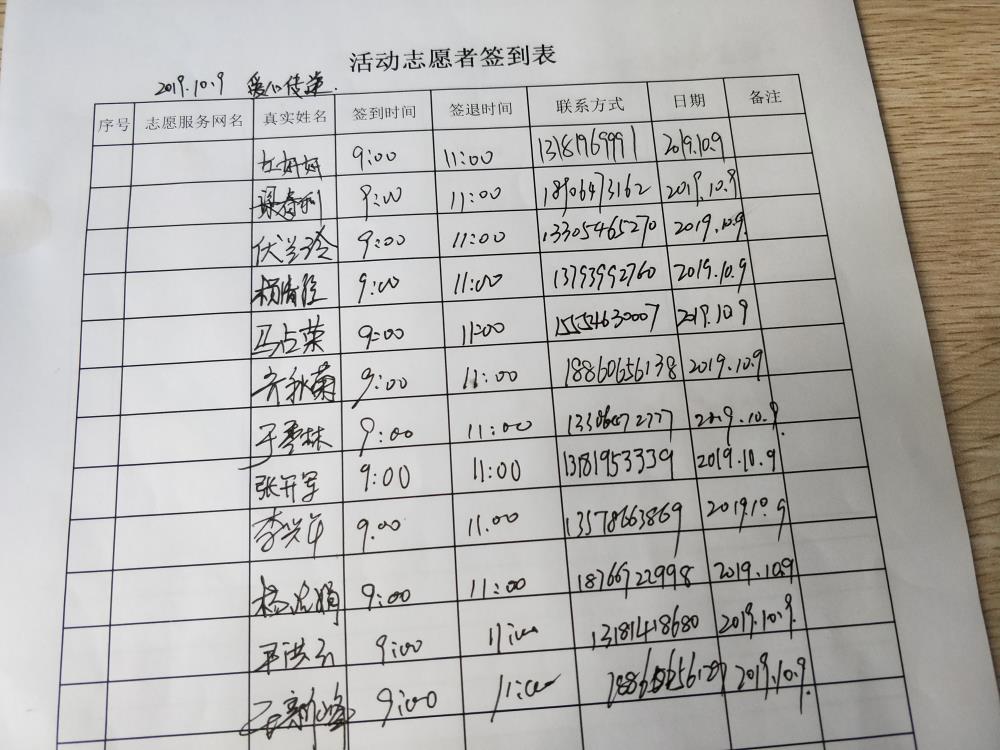 活动志愿者签到表
2019.10.9 爱心传递.
序号 志愿服务网名 真实姓名 签到时间 签退时间 联系方式 日期 备注
9:00 11:00 13181969991 2019.10.9
9:00 11:00 18906473162 2019.10.9
伏兰玲 9:00 11:00 13305465270 2019.10.9
9:00 11:00 13793992760 2019.10.9
马占荣 9:00 11:00 15554630007 2019.10.9
齐秋菊 9:00 11:00 18860656138 2019.10.9
9:00 11:00 2019.10.9
张开军 9:00 11:00 13181953339 2019.10.9
李兴年 9.00 11.00 13578663869 2019.10.9
9:00 11:00 18766722998 2019.10.9
9:00 11:00 13181418680 2019.10.9.
9:00 11:00 2019.10.9.